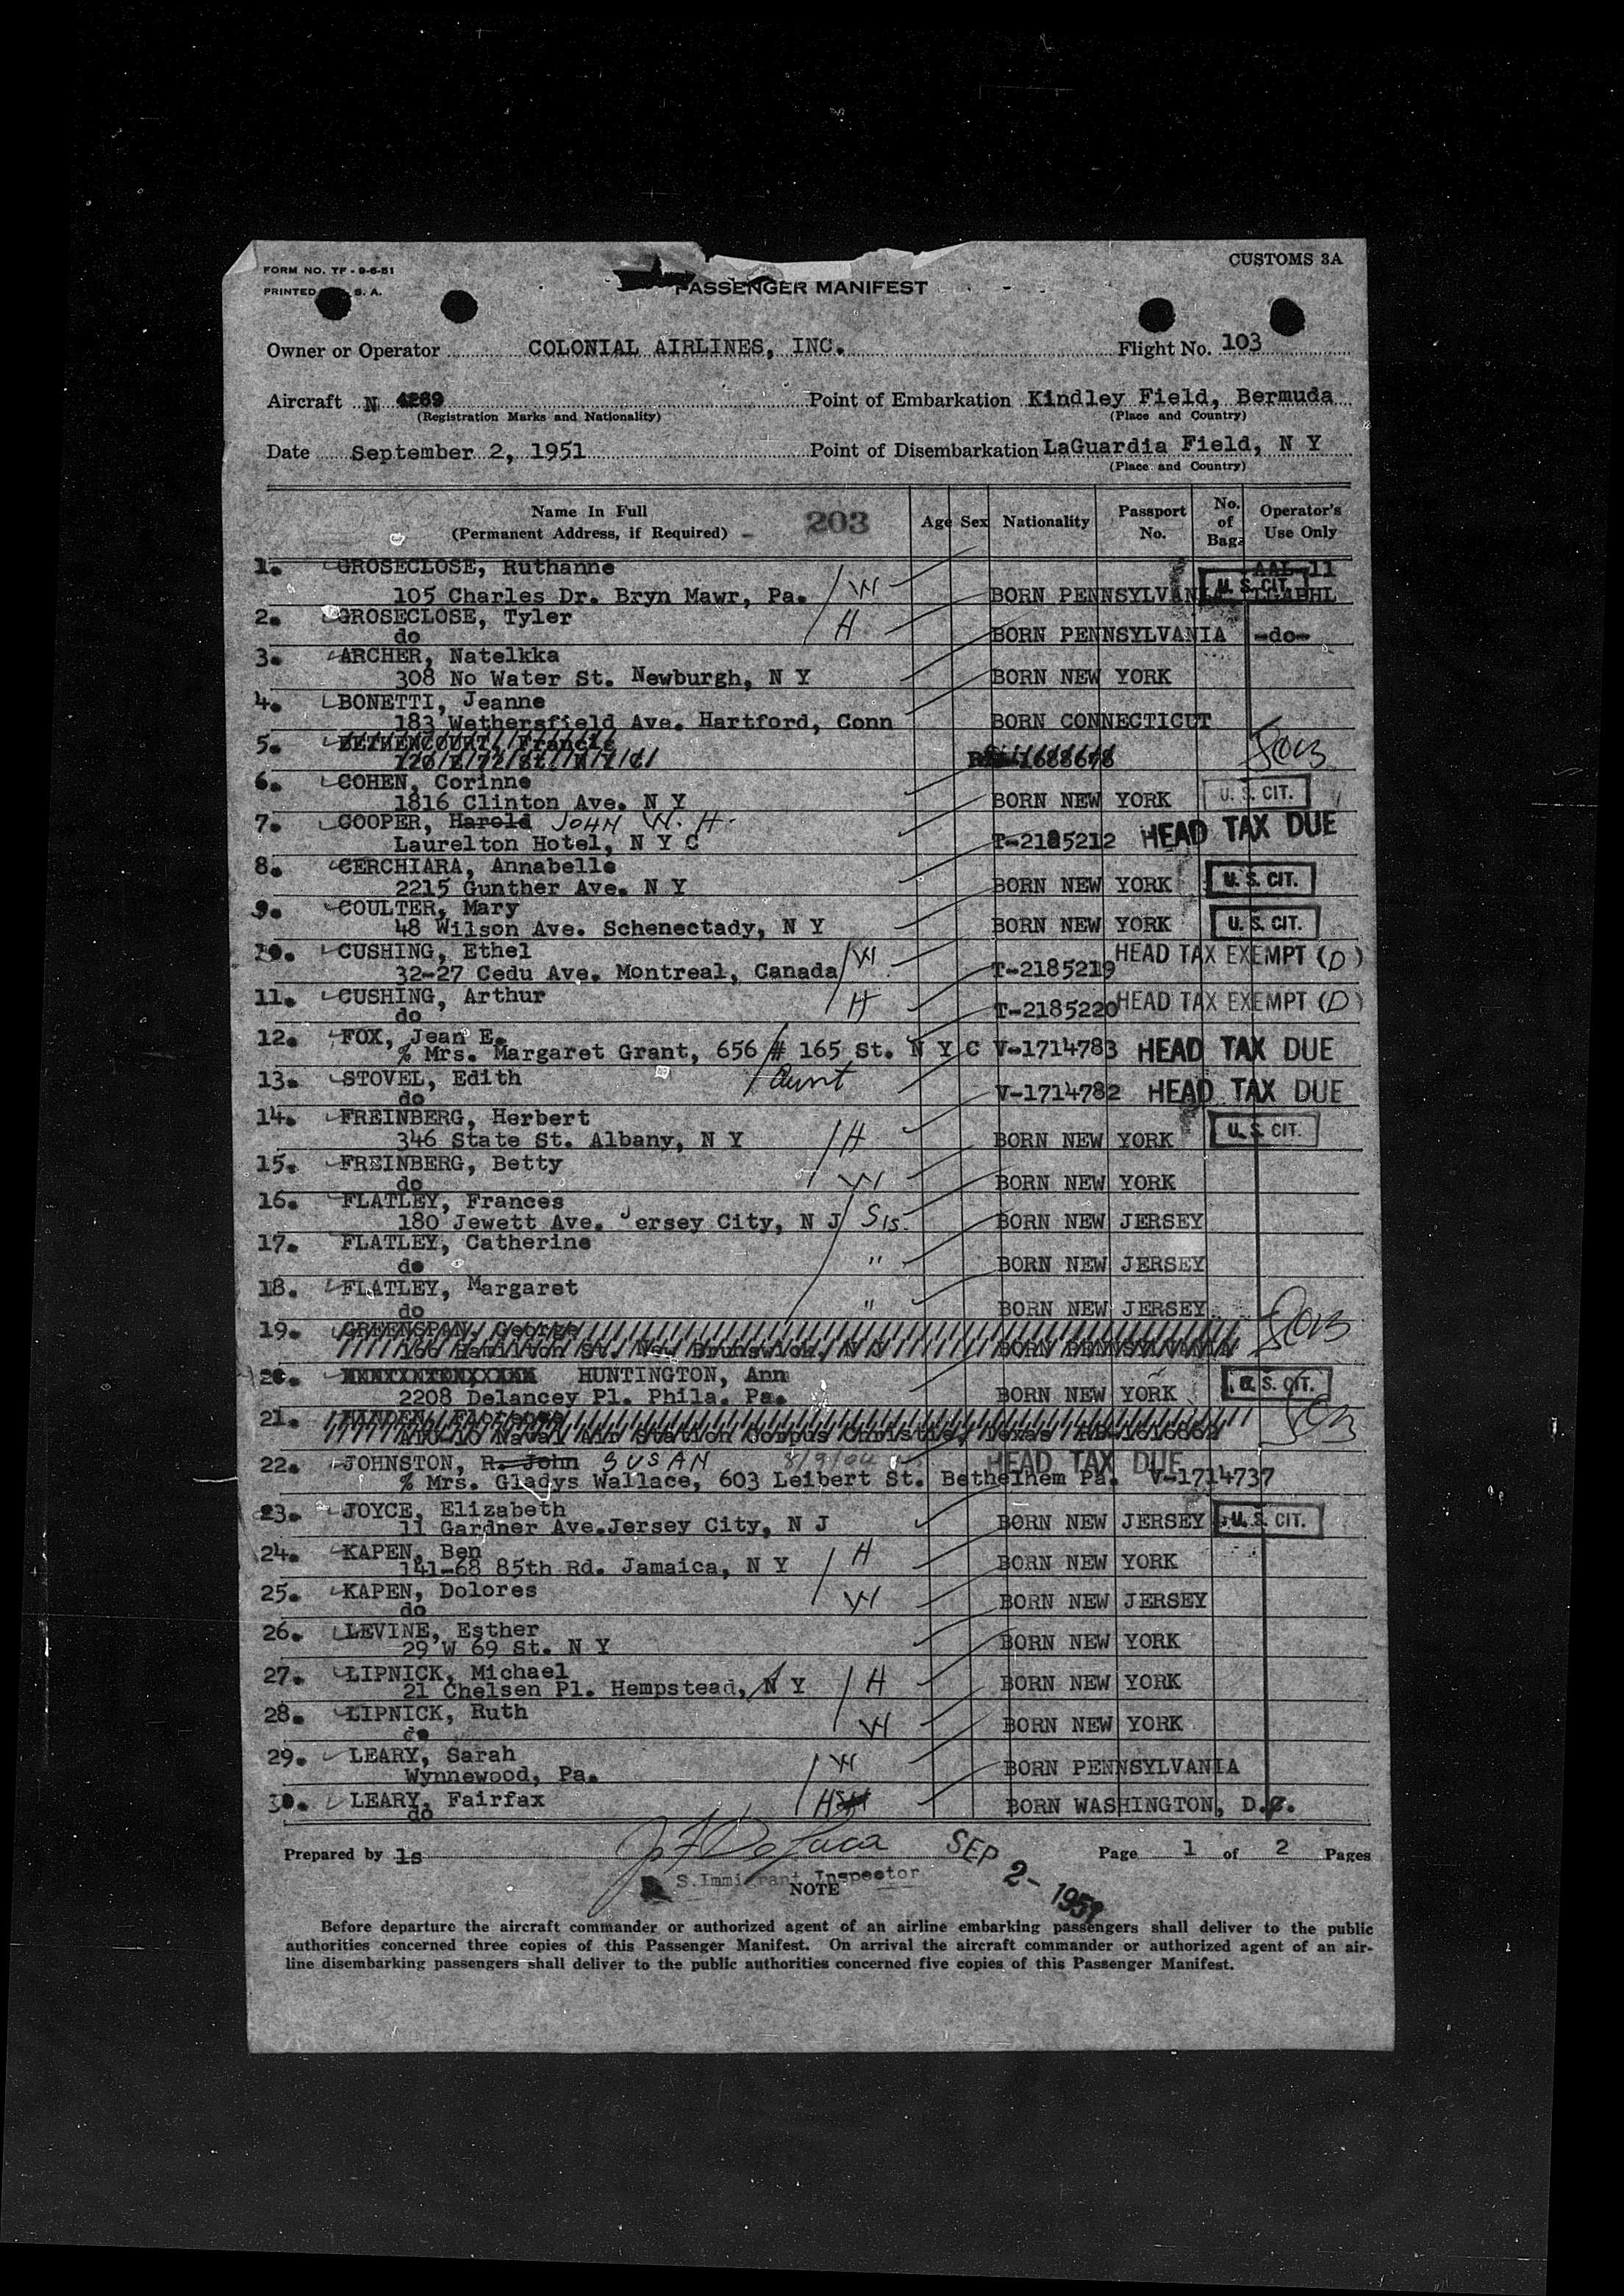 FORM NO. TF - 9-6-51
CUSTOMS 3A
PRINTED S. A.
PASSENGER MANIFEST
Owner or Operator COLONIAL AIRLINES, INC. Flight No. 103
Aircraft N 4289 Point of Embarkation Kindley Field, Bermuda
(Registration Marks and Nationality) (Place and Country)
Date September 2, 1951 Point of Disembarkation LaGuardia Field, N Y
(Place and Country)
Name In Full (Permanent Address, if Required) 203 Age Sex Nationality Passport No. No. of Bags Operator's Use Only
1. GROSECLOSE, Ruthanne AAL 11
105 Charles Dr. Bryn Mawr, Pa. W BORN PENNSYLVANIA U. S. CIT. LGAPHL
2. GROSECLOSE, Tyler
do H BORN PENNSYLVANIA -do-
3. ARCHER, Natelkka
308 No Water St. Newburgh, N Y BORN NEW YORK
4. BONETTI, Jeanne
183 Wethersfield Ave. Hartford, Conn BORN CONNECTICUT
5. BETHENCOURT, Francis
120 E 72 St. N Y C 1688678
6. COHEN, Corinne
1816 Clinton Ave. N Y BORN NEW YORK U. S. CIT.
7. COOPER, Harold JOHN W. H.
Laurelton Hotel, N Y C T-2185212 HEAD TAX DUE
8. CERCHIARA, Annabelle
2215 Gunther Ave. N Y BORN NEW YORK U. S. CIT.
9. COULTER, Mary
48 Wilson Ave. Schenectady, N Y BORN NEW YORK U. S. CIT.
10. CUSHING, Ethel
32-27 Cedu Ave. Montreal, Canada W T-2185219 HEAD TAX EXEMPT (D)
11. CUSHING, Arthur
do H T-2185220 HEAD TAX EXEMPT (D)
12. FOX, Jean E.
% Mrs. Margaret Grant, 656 # 165 St. N Y C V-1714783 HEAD TAX DUE
13. STOVEL, Edith Aunt
do V-1714782 HEAD TAX DUE
14. FREINBERG, Herbert
346 State St. Albany, N Y H BORN NEW YORK U. S. CIT.
15. FREINBERG, Betty
do W BORN NEW YORK
16. FLATLEY, Frances
180 Jewett Ave. Jersey City, N J Sis. BORN NEW JERSEY
17. FLATLEY, Catherine
do " BORN NEW JERSEY
18. FLATLEY, Margaret
do " BORN NEW JERSEY
19. GREENSPAN, George
166 Hamilton St. New Brunswick, N J BORN PENNSYLVANIA
20. HUNTINGTON, Ann
2208 Delancey Pl. Phila. Pa. BORN NEW YORK U. S. CIT.
21.
Naval Air Station Corpus Christie, Texas
22. JOHNSTON, R. John SUSAN HEAD TAX DUE
% Mrs. Gladys Wallace, 603 Leibert St. Bethelhem Pa. V-1714737
23. JOYCE, Elizabeth
11 Gardner Ave.Jersey City, N J BORN NEW JERSEY U. S. CIT.
24. KAPEN, Ben
141-68 85th Rd. Jamaica, N Y H BORN NEW YORK
25. KAPEN, Dolores
do W BORN NEW JERSEY
26. LEVINE, Esther
29 W 69 St. N Y BORN NEW YORK
27. LIPNICK, Michael
21 Chelsen Pl. Hempstead, N Y H BORN NEW YORK
28. LIPNICK, Ruth
do W BORN NEW YORK
29. LEARY, Sarah
Wynnewood, Pa. W BORN PENNSYLVANIA
30. LEARY, Fairfax
do H BORN WASHINGTON, D.C.
Prepared by ls SEP 2- 1951 Page 1 of 2 Pages
S. Immigrant Inspector
NOTE
Before departure the aircraft commander or authorized agent of an airline embarking passengers shall deliver to the public
authorities concerned three copies of this Passenger Manifest. On arrival the aircraft commander or authorized agent of an air-
line disembarking passengers shall deliver to the public authorities concerned five copies of this Passenger Manifest.